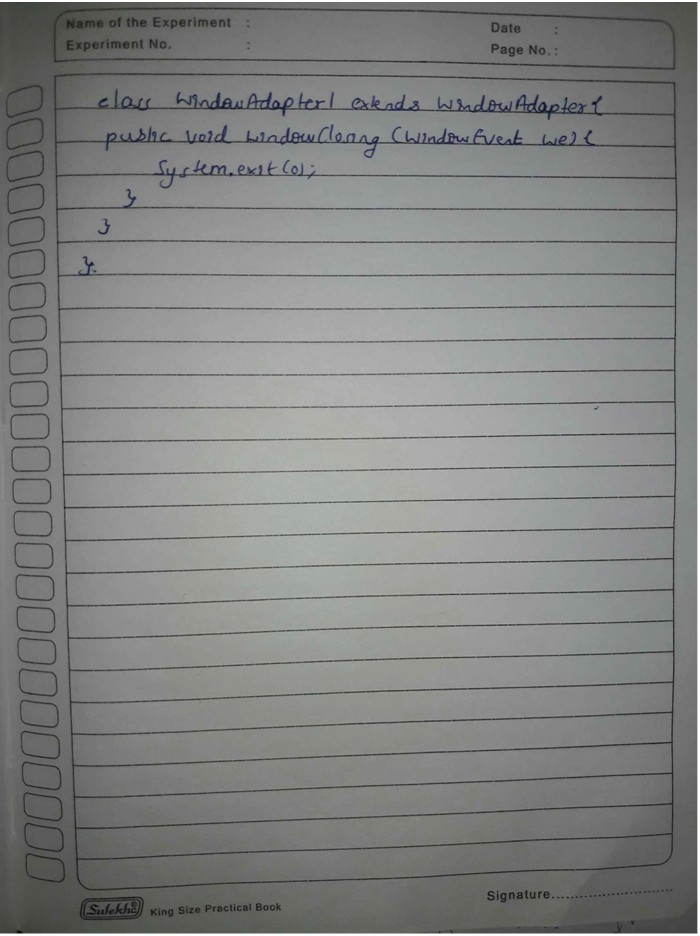 Name of the Experiment :
Date :
Experiment No. :
Page No. :
class WindowAdapter1 extends WindowAdapter{
public void windowClosing (WindowEvent we) {
System.exit(0);
}
}
}
Sulekha
King Size Practical Book
Signature..............................